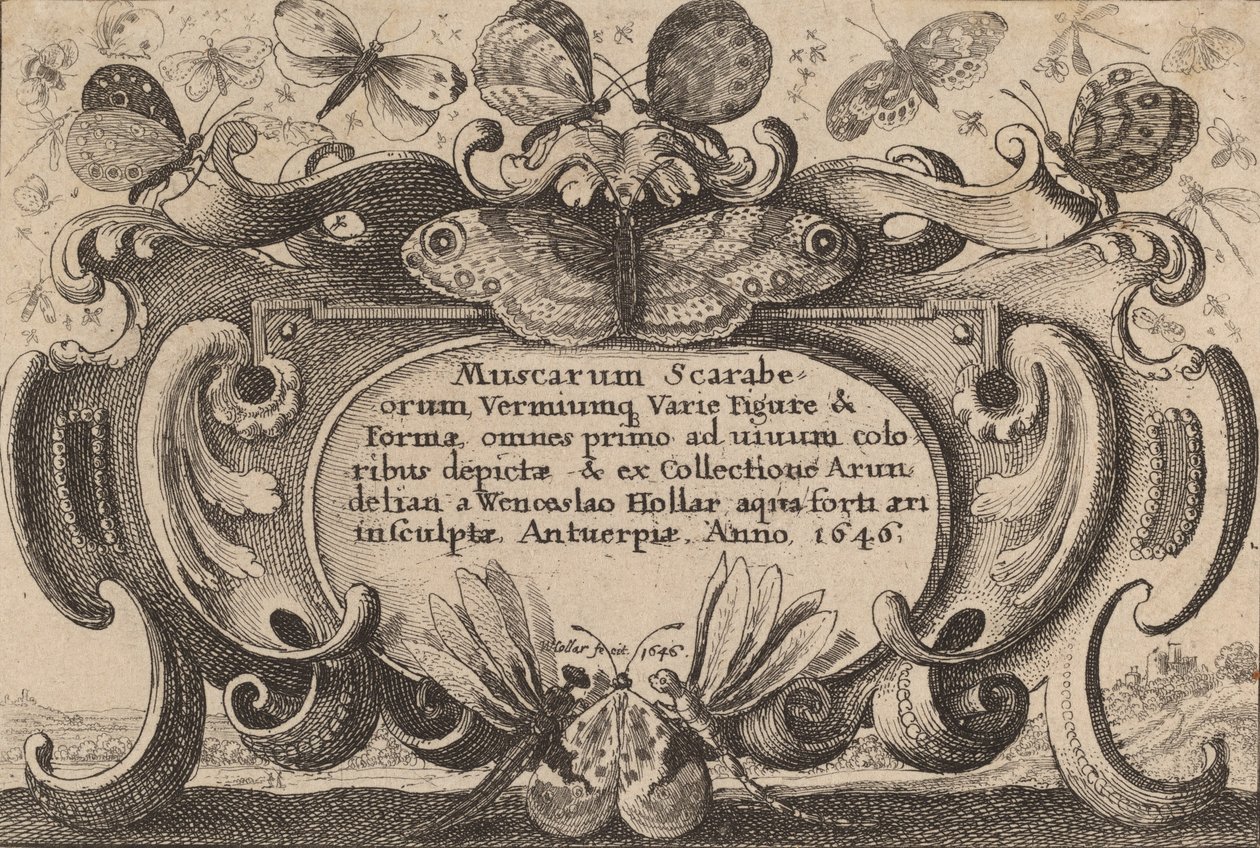 Muscarum Scarabe-
orum, Vermiumq Varie Figure &
Formæ, omnes primo ad uiuum colo-
ribus depictæ & ex Collectione Arun-
delian a Wenceslao Hollar aqua forti æri
insculptæ, Antuerpiæ, Anno, 1646,
WHollar fecit. 1646.